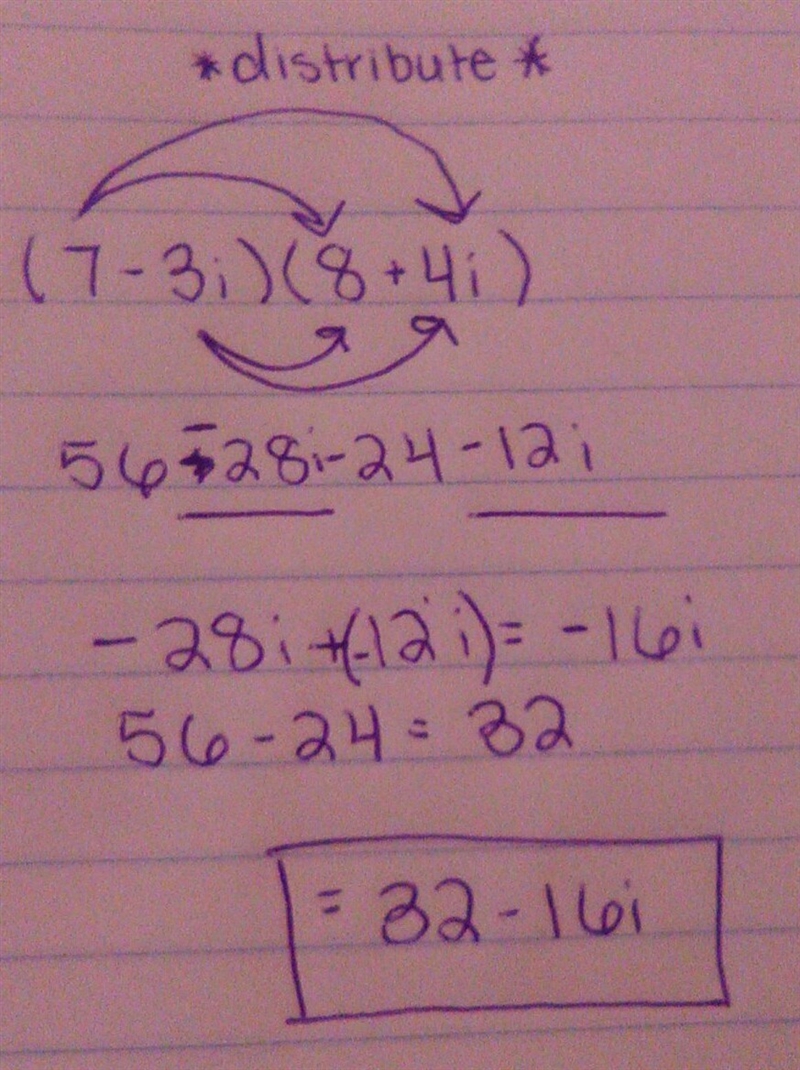 *distribute*
(7-3i)(8+4i)
56-28i-24-12i
-28i+(-12i)=-16i
56-24=32
=32-16i